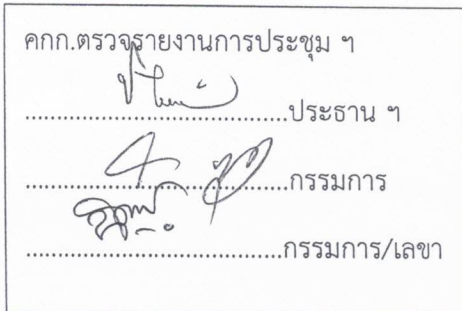 คกก.ตรวจรายงานการประชุม ฯ
........................................ประธาน ฯ
........................................กรรมการ
........................................กรรมการ/เลขา